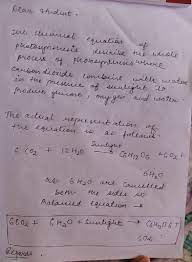 Dear Student,
The chemical equation of
photosynthesis describe the whole
process of photosynthesis where
carbondioxide combine with water
in the presence of sunlight to
produce glucose, oxygen and water.
The actual representation of
the equation is as follows
Sunlight
6 CO2 + 12H2O → C6H12O6 + 6O2 +
6H2O
6H2O are cancelled
both the sides so
Balanced equation →
6CO2 + 6H2O + Sunlight → C6H12O6 +
6O2
Regards